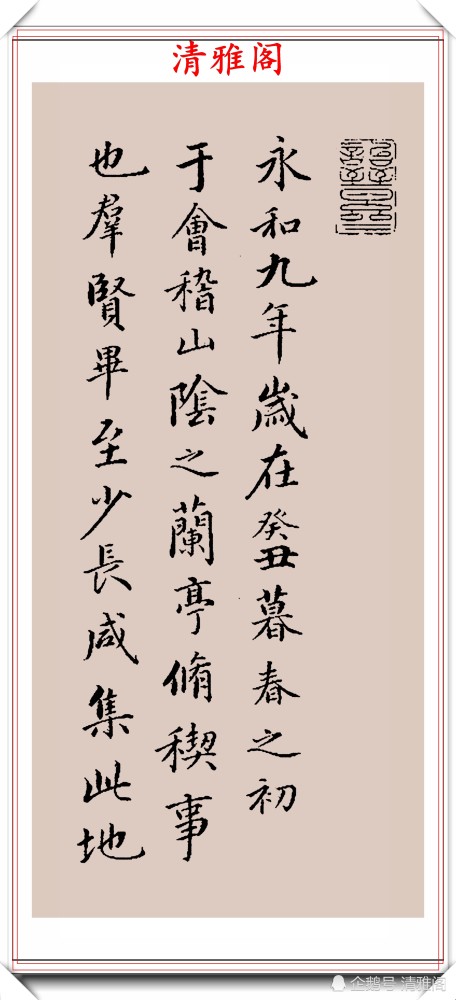 清雅阁
永和九年歲在癸丑暮春之初
于會稽山陰之蘭亭脩稧事
也羣賢畢至少長咸集此地
企鹅号 清雅阁